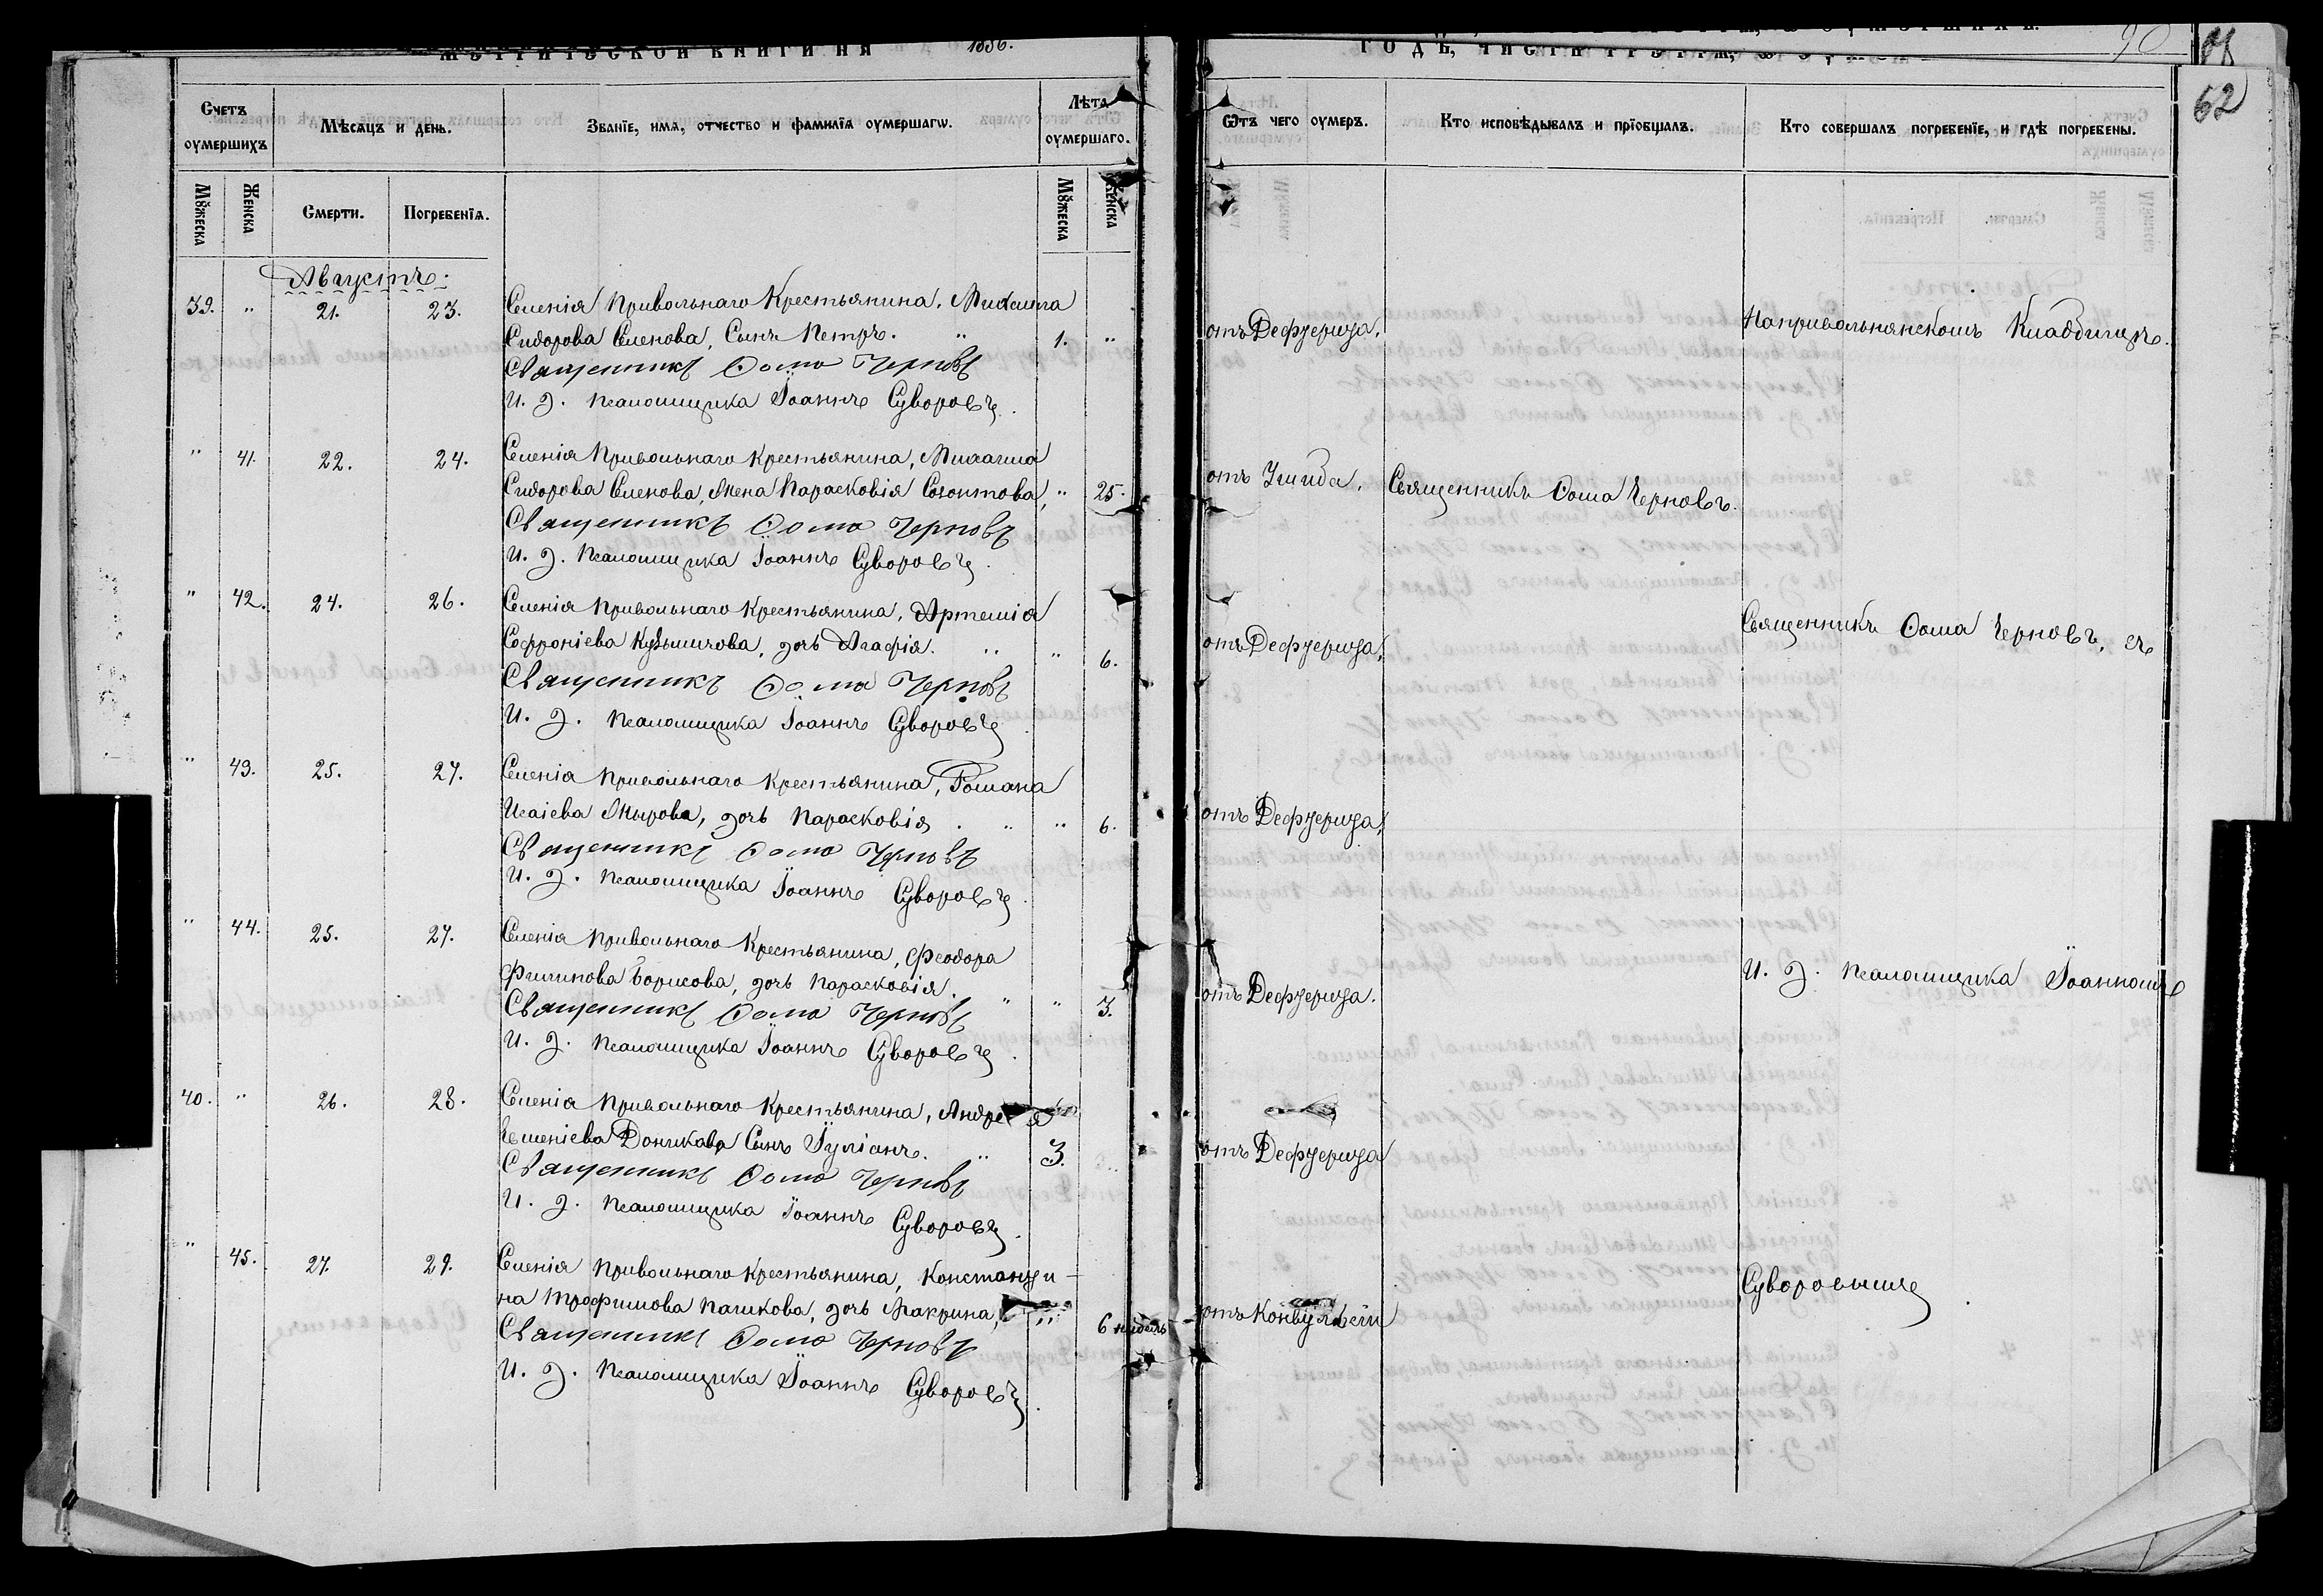 МЕТРИЧЕСКОЙ КНИГИ НА 1886.
Счетъ оумершихъ
Мѣсяцъ и день.
Званїе, имѧ, отчество и фамилїѧ оумершагѡ.
Лѣта оумершаго.
Мꙋжеска
Женска
Смерти.
Погребенїѧ.
Мꙋжеска
Женска
Августъ.
39. " 21. 23. Селенія Привольнаго Крестьянина, Михаила
Сидорова Сленова, Сынъ Петръ. " 1. "
Священникъ Ѳома Черновъ
И. д. псаломщика Іоаннъ Суворовъ.
" 41. 22. 24. Селенія Привольнаго Крестьянина, Михаила
Сидорова Сленова, Жена Парасковія Созонтова, " 25.
Священникъ Ѳома Черновъ
И. д. Псаломщика Іоаннъ Суворовъ.
" 42. 24. 26. Селенія Привольнаго Крестьянина, Артемія
Софроніева Кузьмичова, дочь Агафія. " " 6.
Священникъ Ѳома Черновъ
И. д. псаломщика Іоаннъ Суворовъ.
" 43. 25. 27. Селенія Привольнаго Крестьянина, Романа
Исаіева Жырова, дочь Парасковія. " " 6.
Священникъ Ѳома Черновъ
И. д. Псаломщика Іоаннъ Суворовъ.
" 44. 25. 27. Селенія Привольнаго Крестьянина, Феодора
Филипова Борисова, дочь Парасковія. " " 3.
Священникъ Ѳома Черновъ
И. д. Псаломщика Іоаннъ Суворовъ.
40. " 26. 28. Селенія Привольнаго Крестьянина, Андрея
Доникова Сынъ Іуліанъ. " 3. "
Священникъ Ѳома Черновъ
И. д. Псаломщика Іоаннъ Суворовъ.
" 45. 27. 29. Селенія Привольнаго Крестьянина, Константи-
на Трофимова Пашкова, дочь Макрина, " 6 недѣль
Священникъ Ѳома Черновъ
И. д. Псаломщика Іоаннъ Суворовъ.
ГОДЪ, ЧАСТЬ ТРЕТЬѦ, Ѡ ОУМЕРШИХЪ.
90
62
Ѿтъ чего оумеръ.
Кто исповѣдывалъ и прїобщалъ.
Кто совершалъ погребенїе, и гдѣ погребены.
отъ Дефтерита.
На привольнянскомъ Кладбищѣ.
отъ
Священникъ Ѳома Черновъ.
отъ Дефтерита,
Священникъ Ѳома Черновъ, съ
отъ Дефтерита,
отъ Дефтерита.
И. д. псаломщика Іоанномъ
отъ Дефтерита
отъ Конвульсіи
Суворовымъ.